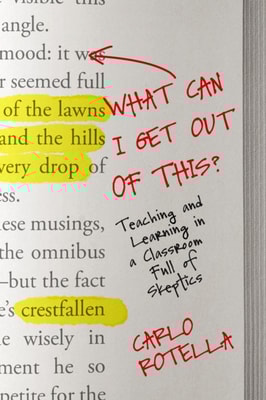 visible this
angle.
mood: it was
r seemed full
of the lawns
and the hills
very drop of
ess.
ese musings,
the omnibus
–but the fact
e's crestfallen
e wisely in
ment he so
petite for the
WHAT CAN
I GET OUT
OF THIS?
Teaching and
Learning in
a Classroom
Full of
Skeptics
CARLO
ROTELLA